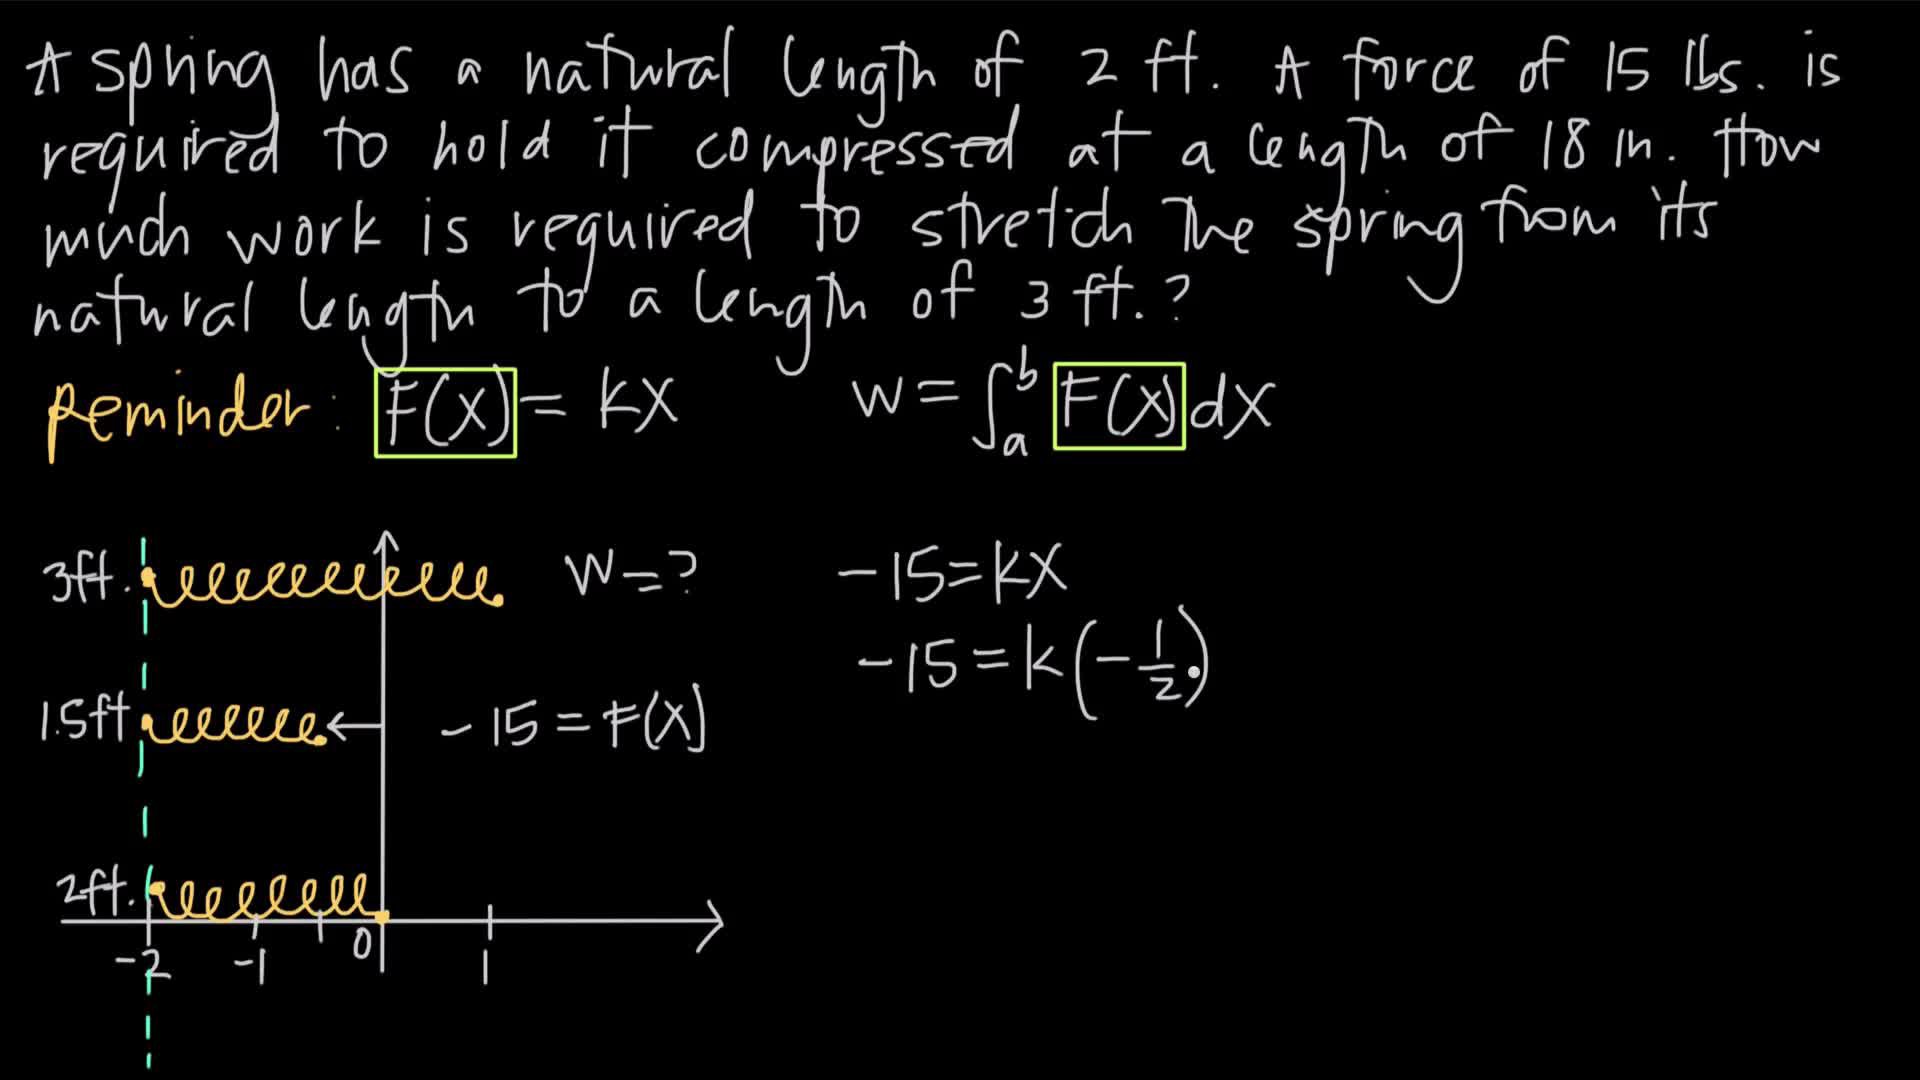 A spring has a natural length of 2 ft. A force of 15 lbs. is
required to hold it compressed at a length of 18 in. How
much work is required to stretch the spring from its
natural length to a length of 3 ft.?
Reminder: F(x) = kx W = ∫_a^b F(x) dx
3ft. W = ? -15 = kx
-15 = k(-1/2)
1.5ft -15 = F(x)
2ft.
-2 -1 0 1